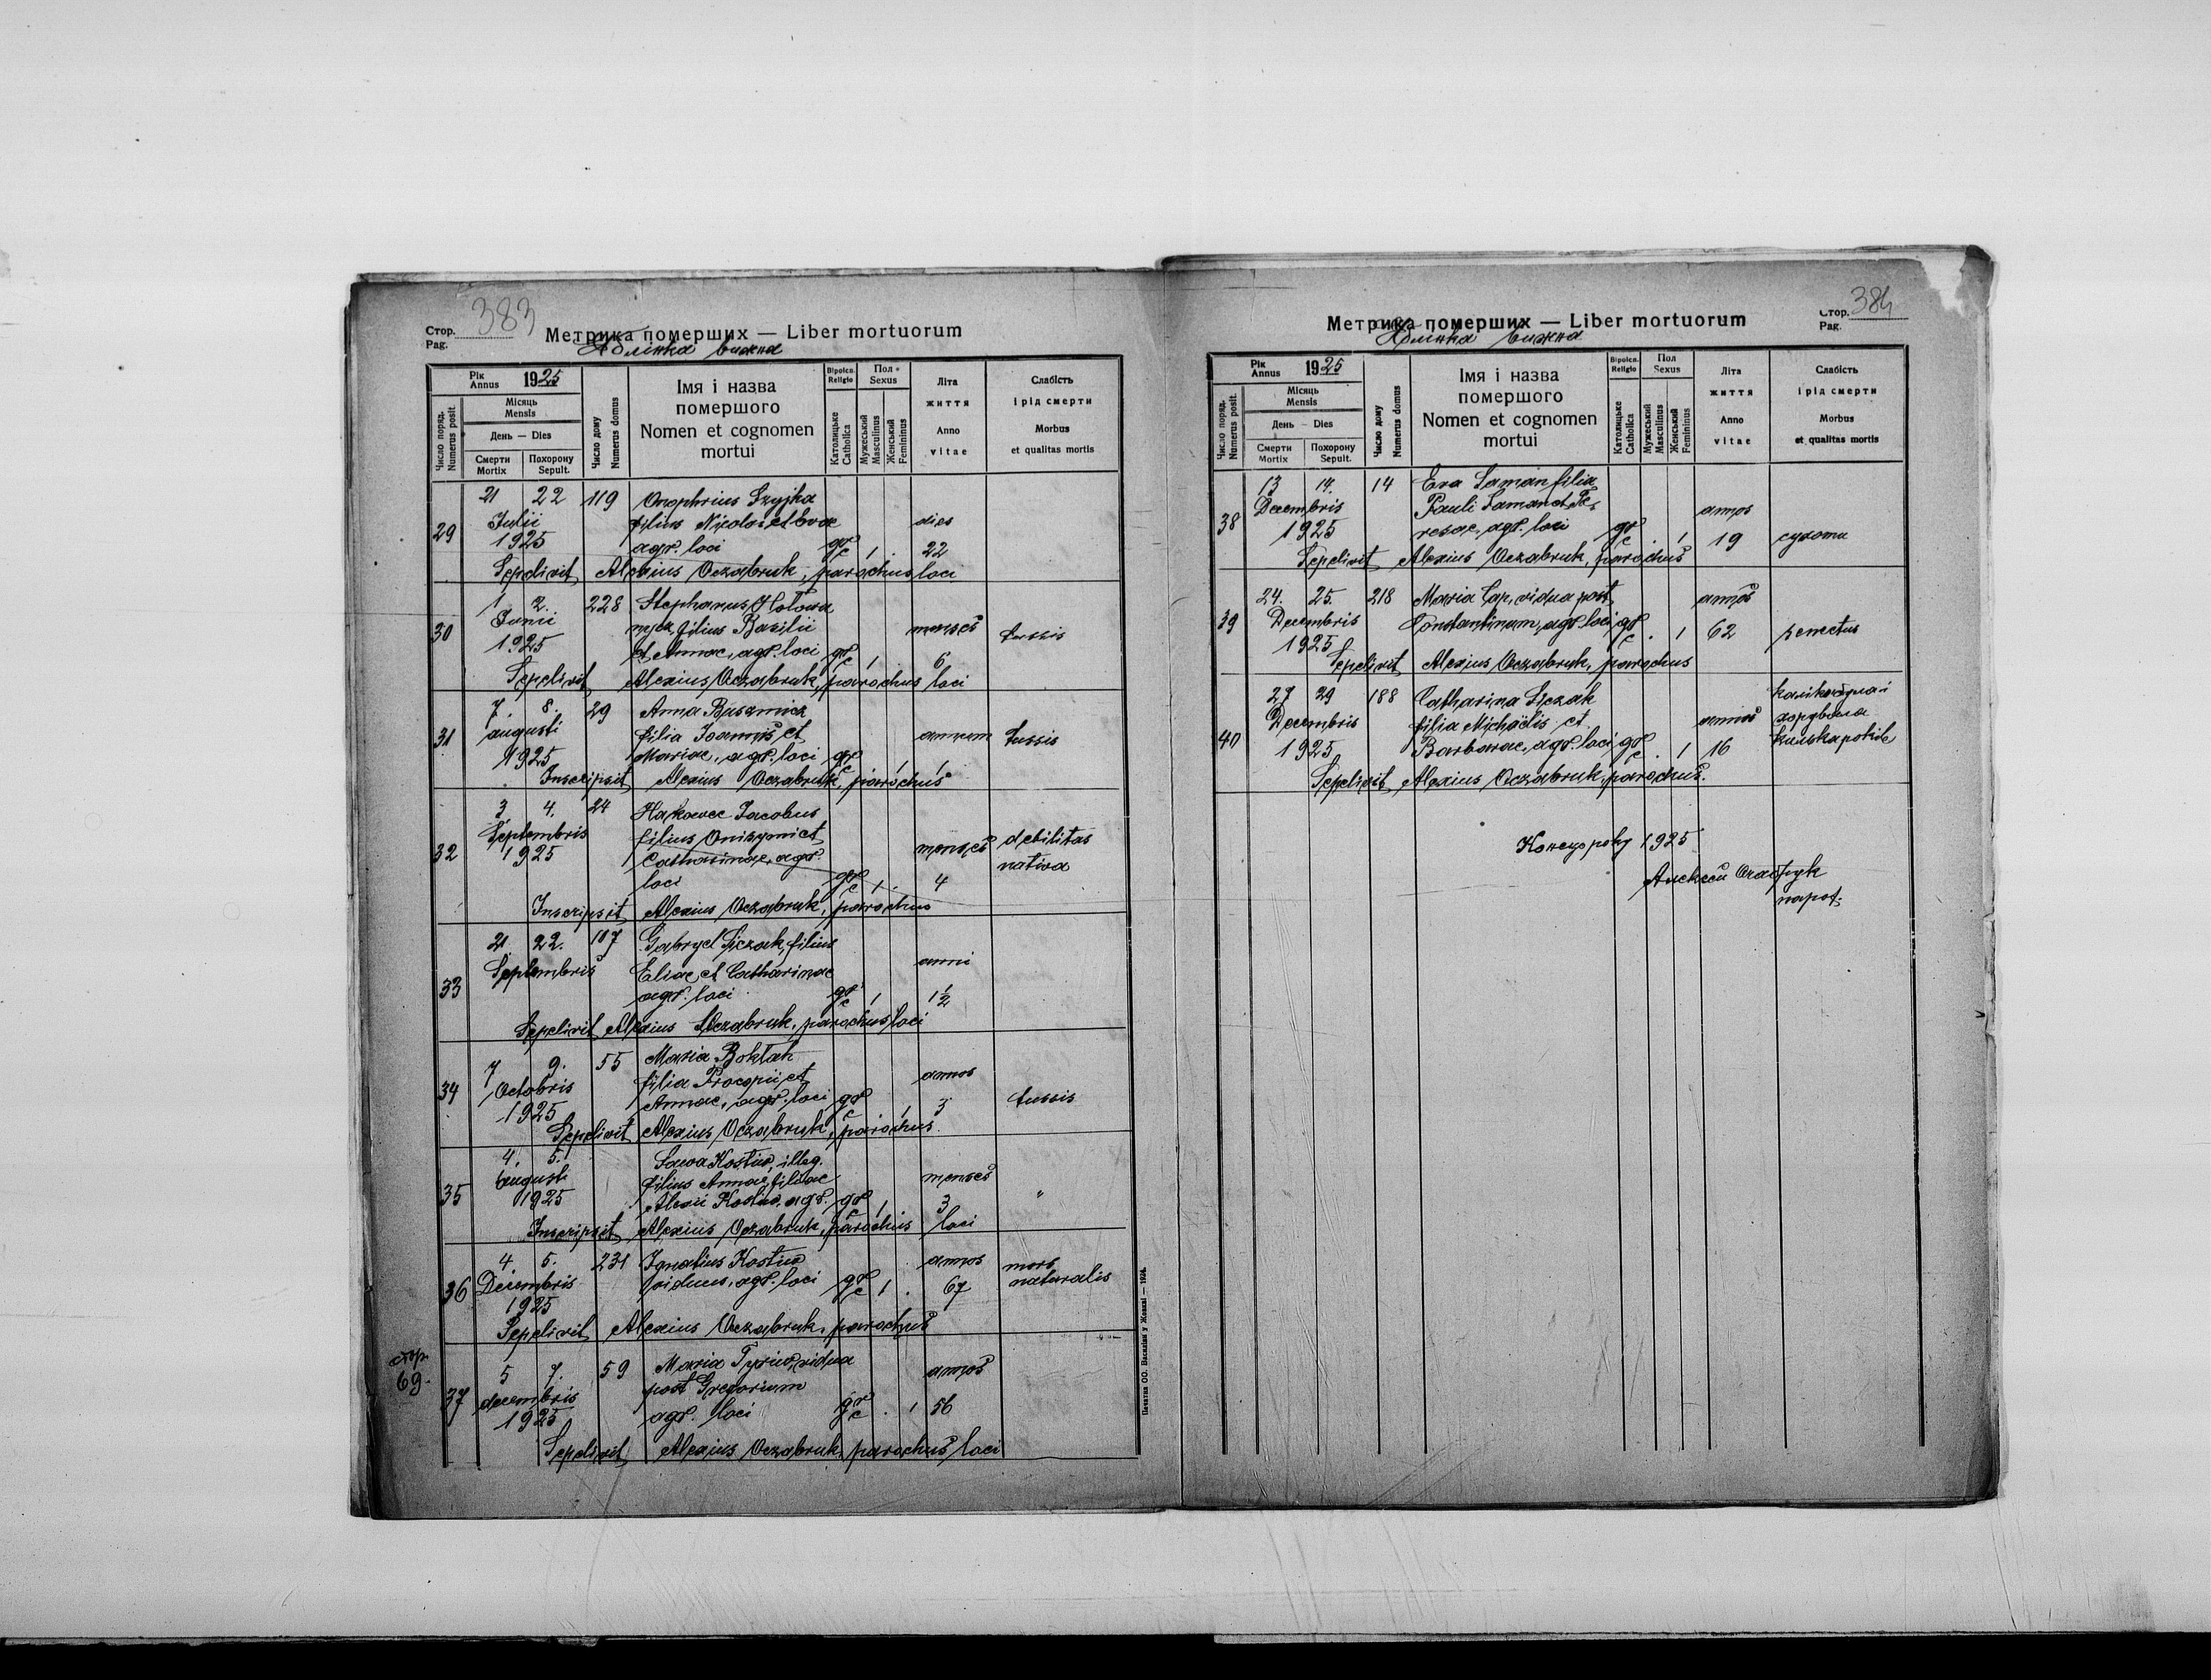 383
Стор.
Pag.
Метрика померших — Liber mortuorum
Яблінка вижна
Рік
Annus 1925
Число поряд.
Numerus posit.
Місяць
Mensis
День — Dies
Смерти
Mortix
Похорону
Sepult.
Число дому
Numerus domus
Імя і назва
помершого
Nomen et cognomen
mortui
Віроісп.
Religio
Католицьке
Catholica
Пол
Sexus
Мужеський
Masculinus
Женський
Femininus
Літа
життя
Anno
vitae
Слабість
і рід смерти
Morbus
et qualitas mortis
29 21 22 119 Onophrius Szyjka
Julii filius Nicolai et Evae dies
1925 agr. loci gr c 1 . 22
Sepelivit Alexius Oczabruk, parochus loci
30 1 2. 228 Stephanus Hołowa
Junii filius Basilii menses tussis
1925 et Annae, agr. loci gr c 1 . 6
Sepelivit Alexius Oczabruk, parochus loci
31 7. 8. 29 Anna
augusti filia Joannis et annum tussis
1925 Mariae, agr. loci gr c . 1 1
Inscripsit Alexius Oczabruk, parochus
32 3. 4. 24 Hakawec Jacobus
Septembris filius Onisymi et menses debilitas
1925 Catharinae, agr. nativa
loci gr c 1 . 4
Inscripsit Alexius Oczabruk, parochus
33 21. 22. 187 Gabryel Siczak, filius
Septembris Eliae et Catharinae anni
agr. loci gr c 1 1½
Sepelivit Alexius Oczabruk, parochus loci
34 7 9. 55 Maria Boktah
Octobris filia Procopii et annos
1925 Annae, agr. loci gr c . 1 3 tussis
Sepelivit Alexius Oczabruk, parochus.
35 4. 5. Sawa Kostiw, illeg.
augusti filius Annae, filiae menses
1925 Alexii Kostiw, agr. gr c 1 . 3 "
Inscripsit Alexius Oczabruk, parochus loci
36 4. 5. 231 Ignatius Kostiw annos mors
Decembris viduus, agr. loci gr c 1 . 67 naturalis
1925
Sepelivit Alexius Oczabruk, parochus
стор.
69.
37 5 7. 59 Maria Tyriw, vidua annos
decembris post Gregorium
1925 agr. loci gr c . 1 56
Sepelivit Alexius Oczabruk, parochus loci
Печатня ОО. Василіян у Жовкві — 1924.
384
Стор.
Pag.
Метрика померших — Liber mortuorum
Яблінка вижна
Рік
Annus 1925
Число поряд.
Numerus posit.
Місяць
Mensis
День — Dies
Смерти
Mortix
Похорону
Sepult.
Число дому
Numerus domus
Імя і назва
помершого
Nomen et cognomen
mortui
Віроісп.
Religio
Католицьке
Catholica
Пол
Sexus
Мужеський
Masculinus
Женський
Femininus
Літа
життя
Anno
vitae
Слабість
і рід смерти
Morbus
et qualitas mortis
38 13 14. 14 Eva Saman filia
Decembris Pauli Saman et Te- annos
1925 resae, agr. loci gr c . 1 19 сухоти
Sepelivit Alexius Oczabruk, parochus
39 24. 25. 218 Maria Cap, vidua post annos
Decembris Constantinum, agr. loci gr c . 1 62 senectus
1925
Sepelivit Alexius Oczabruk, parochus
40 27 29 188 Catharina Siczak
Decembris filia Michaëlis et annos хорувала
1925 Barbarae, agr. loci gr c . 1 16 кілька років
Sepelivit Alexius Oczabruk, parochus.
Конец року 1925
Алексій Очабрук
парох.